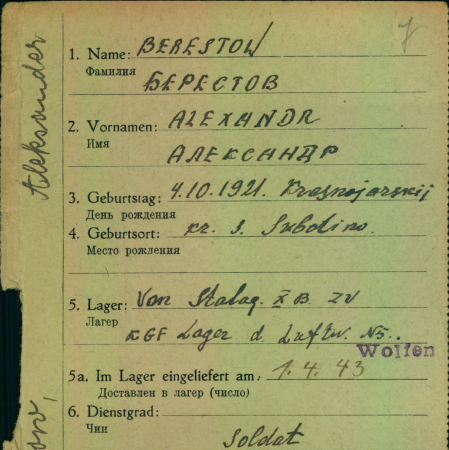 7
1. Name: BERESTOW
Фамилия
БЕРЕСТОВ
2. Vornamen: ALEXANDR
Имя
АЛЕКСАНДР
3. Geburtstag: 4.10.1921. Krasnojarskij
День рождения
4. Geburtsort: kr. s. Subdino.
Место рождения
5. Lager: Von Stalag. X B. ZV
Лагер
KGF Lager d. Luftw. N5..
Wolfen
5a. Im Lager eingeliefert am: 1.4.43
Доставлен в лагер (число)
6. Dienstgrad:
Чин
Soldat
Aleksander
ow,